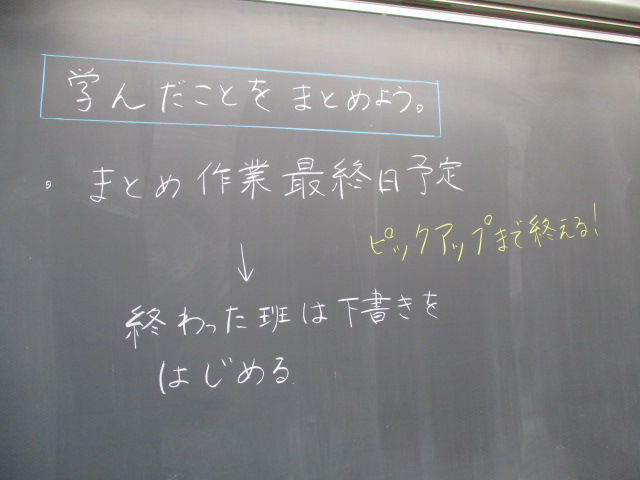 学んだことをまとめよう。
。まとめ作業最終日予定
ピックアップまで終える!
↓
終わった班は下書きを
はじめる